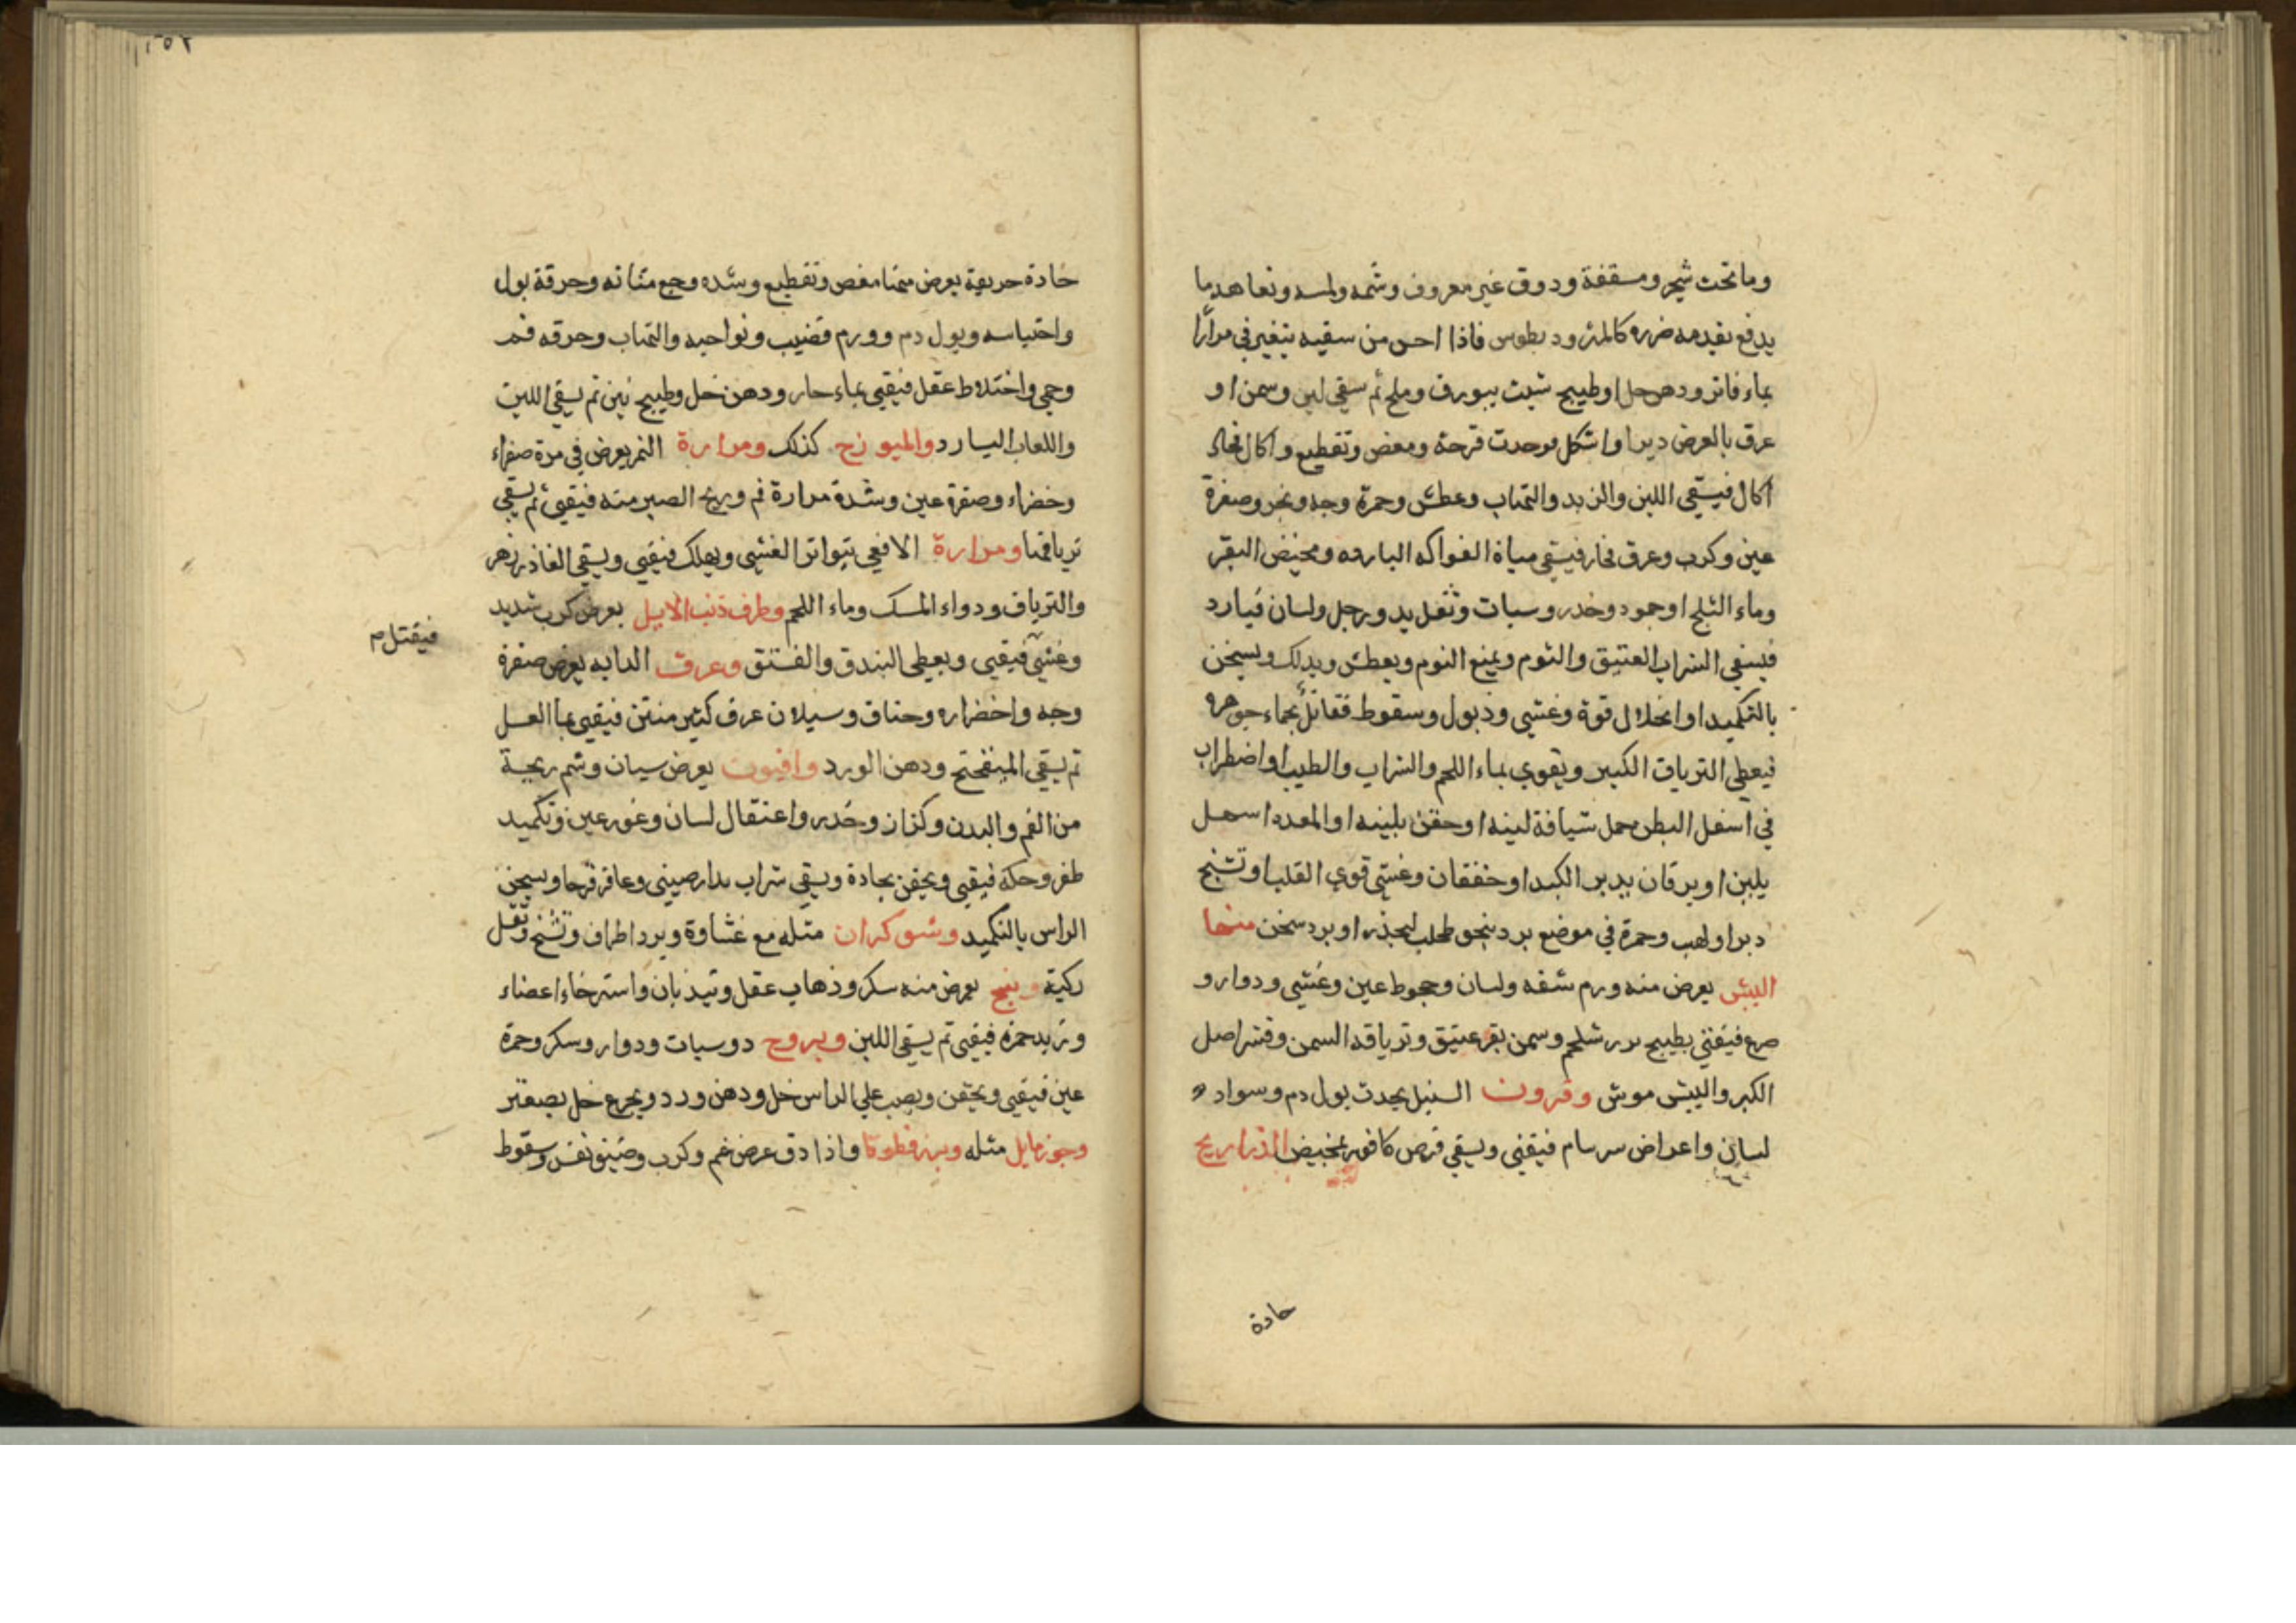 وما تحت شجر ومسقفة وذوق غير معروف وشمه ولمسه وتعاهد ما
يدفع بقدمه ضرره كالمثروديطوس فاذا احس من سقيه يتغير في مرارا
بماء فاتر ودهن حل او طبيخ شبث ببورق وملح ثم سقي لبن وسمن او
عرق بالعرض ديرا واشكل فوحدت قرحة ومغص وتقطيع واكال فحاد
اكال فيسقي اللبن والزبد والتهاب وعطش وحمرة وجه ونخر وصفرة
عين وكرب وعرق فحار فيسقي مياة الفواكه البارده ومخيض البقر
وماء الثلج او جمود وخدر وسبات وثقل يد ورجل ولسان فبارد
فيسقي الشراب العتيق والثوم ويمنع النوم ويعطش ويدلك ويسخن
بالتكميد او انحلال قوة وغشي وذبول وسقوط فقاتل بجماء جوهره
فيعطي الترياق الكبير ويقوي بماء اللحم والشراب والطيب او اضطراب
في اسفل البطن حمل شيافة لينه او حقن بلينه او المعده اسهل
يلين او يرقان يدبر الكبد او خفقان وغشي قوي القلب او تشنج
دبر او لهب وحمرة في موضع برد بنحو طحلب لبحذر او برد سخن منها
البيش يعرض منه ورم شفه ولسان وجحوظ عين وغشي ودوار و
صرع فيقئي بطبيخ بزر شلجم وسمن بقر عتيق وترياقه السمن وقشر اصل
الكبر والبيش موش وقرون السنبل يحدث بول دم وسواد
لسان واعراض سرسام فيقئي ويسقي قرص كافور بمخيض الذراريح
حادة
١٥٢
حادة حريفة يعرض منها مغص وتقطيع وشده وجع مثانه وحرقة بول
واحتباسه وبول دم وورم قضيب ونواحيه والتهاب وحرقه فم
وحمي واختلاط عقل فيقيي بماء حار ودهن خل وطبيخ تين ثم يسقي اللبن
واللعاب البارد والميوزج كذلك ومرارة النمر يعرض في مرة صفراء
وخضراء وصفرة عين وشدة مرارة فم وريح الصبر منه فيقيي ثم يسقي
ترياقها ومرارة الافعي يتواتر الغشي ويهلك فيقيي ويسقي الفاذزهر
والترياق ودواء المسك وماء اللحم وطرف ذنب الايل يعرض كرب شديد
وغشي فيقيي ويعطي البندق والفستق وعرق الدابه يعرض صفرة
فيقتل م
وجه واخضراره وخناق وسيلان عرق كثير منتن فيقيي بماء العسل
ثم يسقي الميبفختج ودهن الورد وافيون يعرض سبات وشم ريحه
من الفم والبدن وكزاز وخدر واعتقال لسان وغور عين وتكميد
ظفر وحكة فيقيي ويحقن بحادة ويسقي شراب بدارصيني وعاقرقرحا ويسخن
الراس بالتكميد وشوكران مثله مع غشاوة وبرد اطراف وتشنج وثقل
ركبة وبنج يعرض منه سكر وذهاب عقل وتيذبان واسترخاء اعضاء
وزبد حمزة فيقيي ثم يسقي اللبن ويبروح دوسبات ودوار وسكر وحمرة
عين فيقيي ويحقن ويصب علي الراس خل ودهن ورد ويجرع خل بصعتر
وجوز مايل مثله وبزرقطونا واذا دق عرض غم وكرب وضيق نفس وسقوط